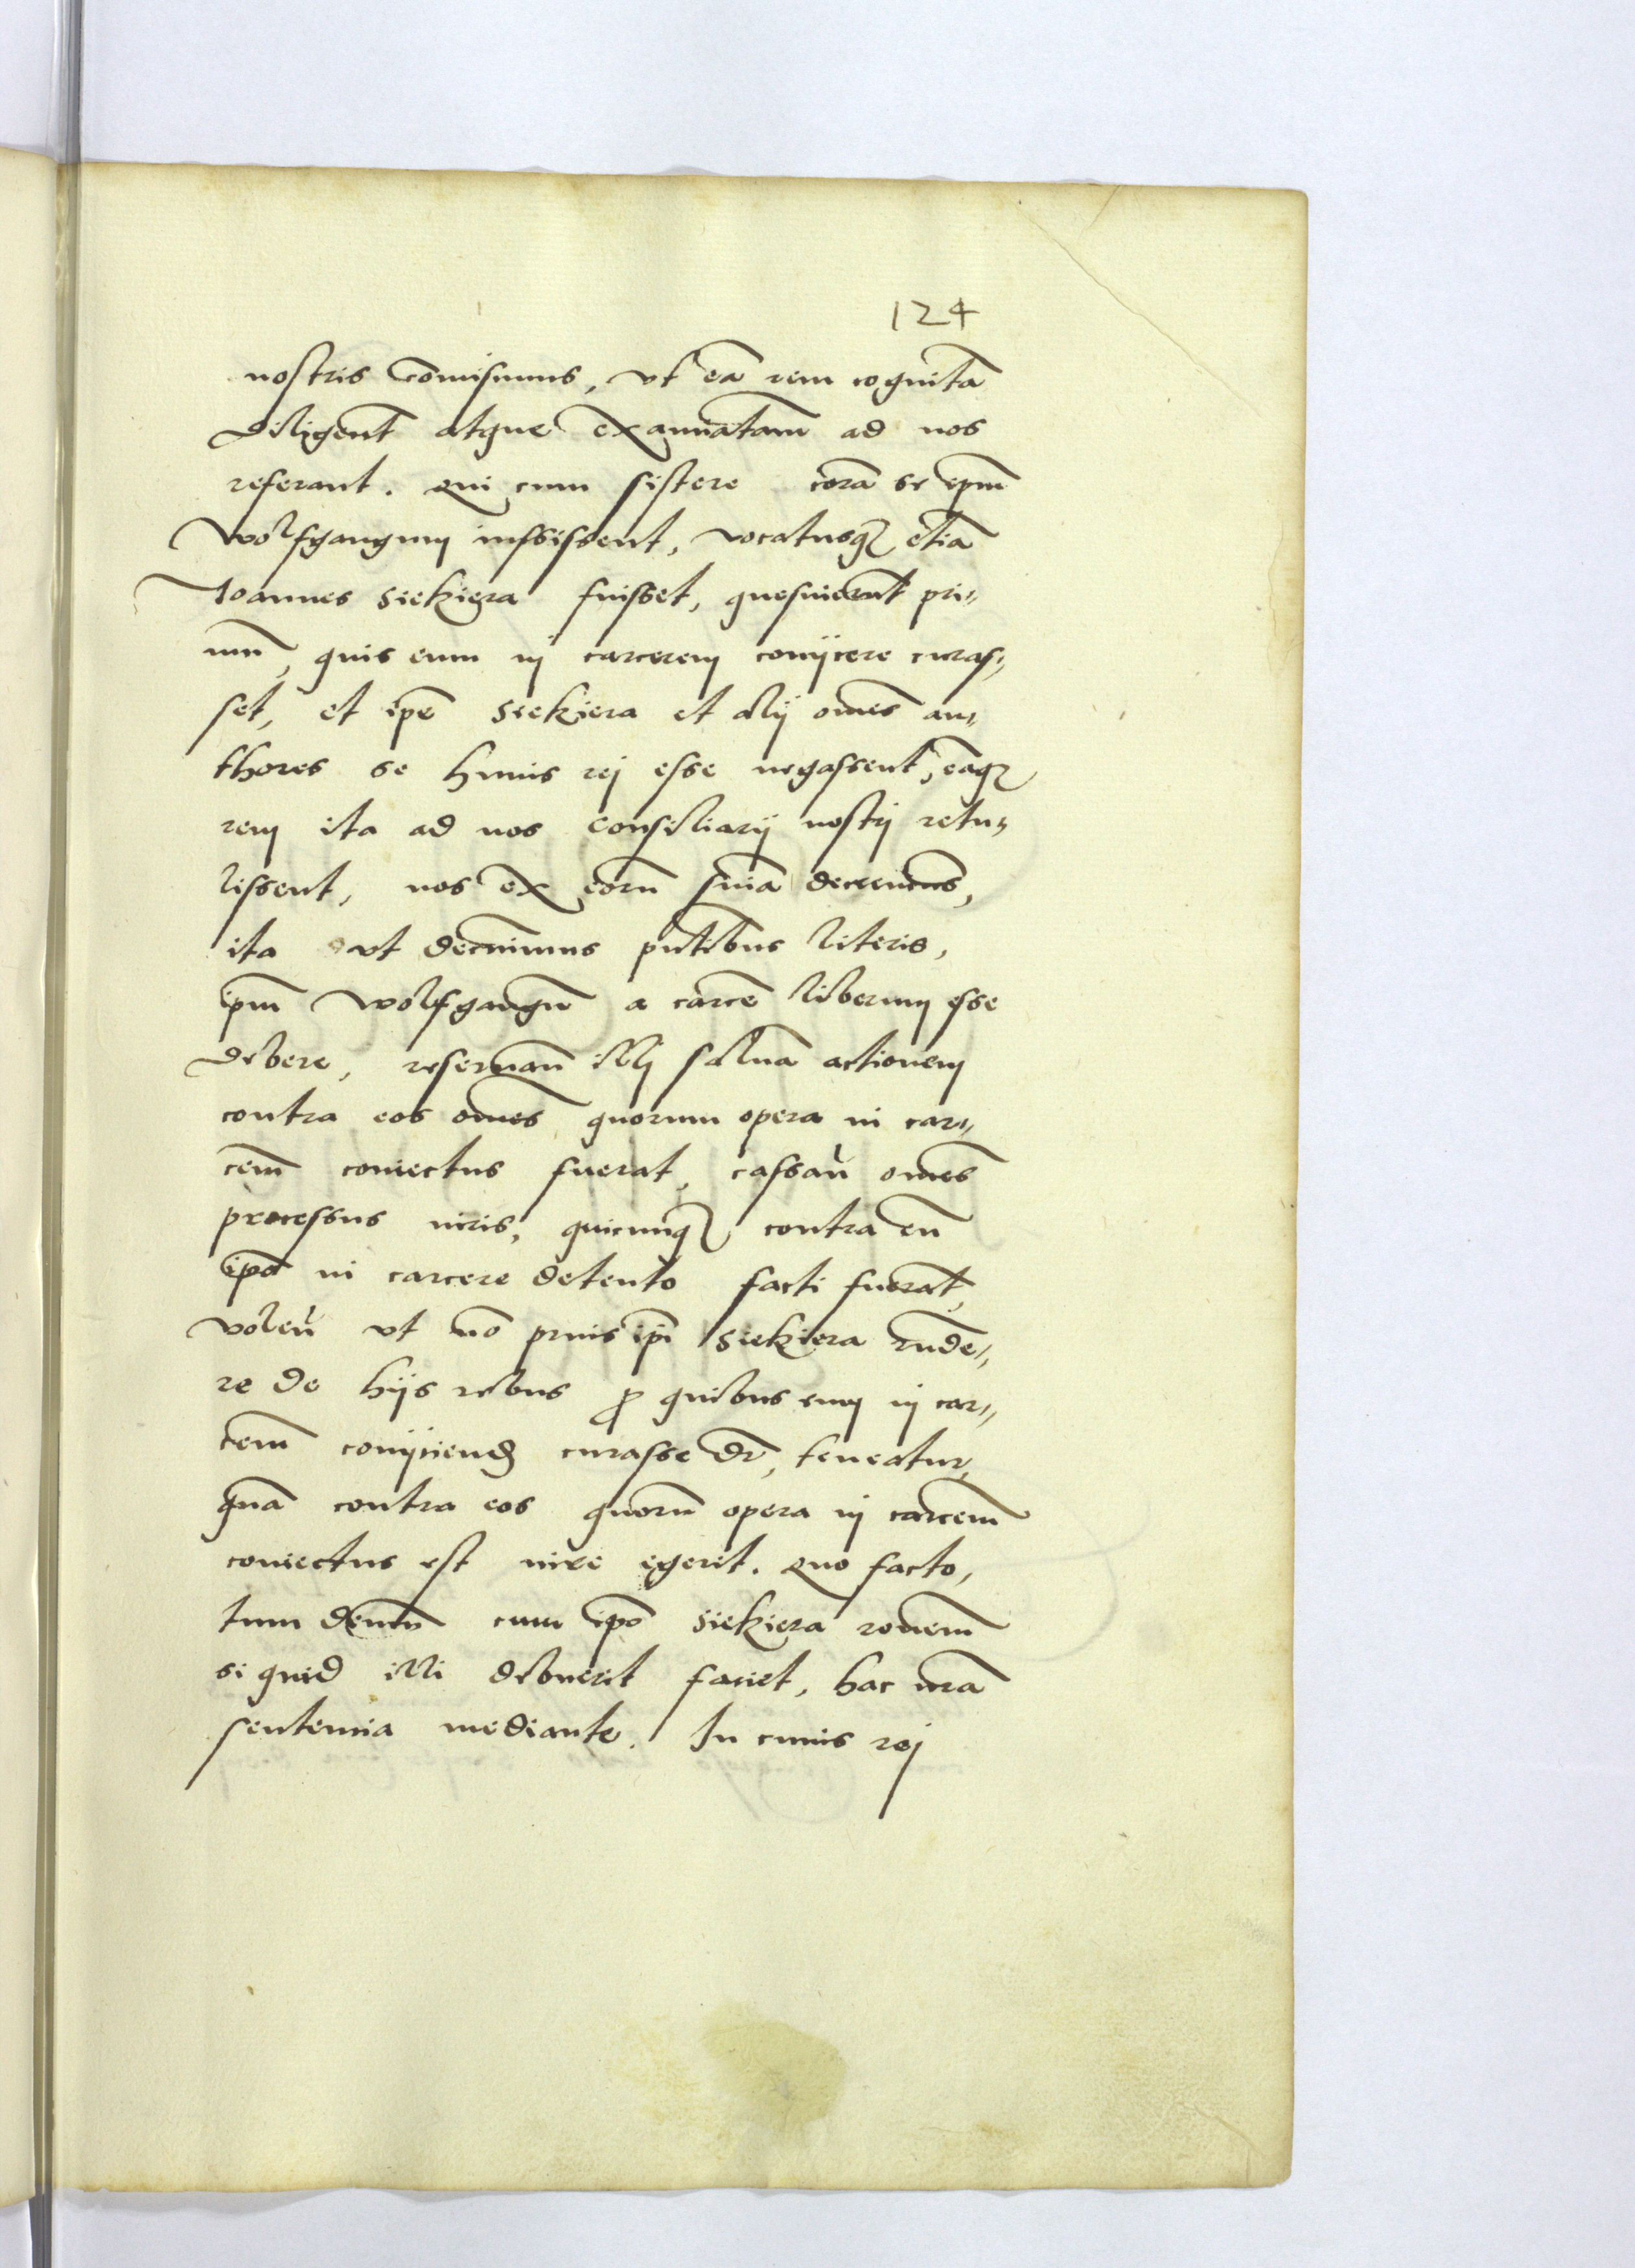 124
nostris com̄isimus, vt eā rem cognitā
diligent̄ atque examinatam ad nos
referant. Qui cum sistere corā se ip̄m
Wolfgangum iussissent, vocatusq₃ etiā
Ioannes Siekiera fuisset, quesiuerunt pri„
mū, quis eum in carcerem conijcere curas„
set, et ip̄e Siekiera et alij om̄es au„
thores se huius rei esse negassent, eāq₃
rem ita ad nos consiliarij nostri retu„
lissent, nos ex eorū sn̄ia decreuim̄s,
ita vt decernimus pn̄tibus literis,
ip̄m Wolfgangū a carcē liberum esse
debere, reseruan̄ illi saluā actionem
contra eos om̄es quorum opera in car„
cem̄ coniectus fuerat, cassan̄ om̄es
processus iuris, quicunq₃ contra eū
ip̄o in carcere detento facti fuerāt,
volen̄ vt nō prius ip̄i Siekiera rn̄de„
re de hijs rebus ꝓ quibus eum in car„
cem̄ conijciend̄ curasse dr̄, teneatur,
quā contra eos quorū opera in carcem̄
coniectus est iure egerit. Quo facto,
tum demū cum ip̄o Siekiera ronem̄
si quid illi debuerit faciet, hac nr̄a
sententia mediante. In cuius rei